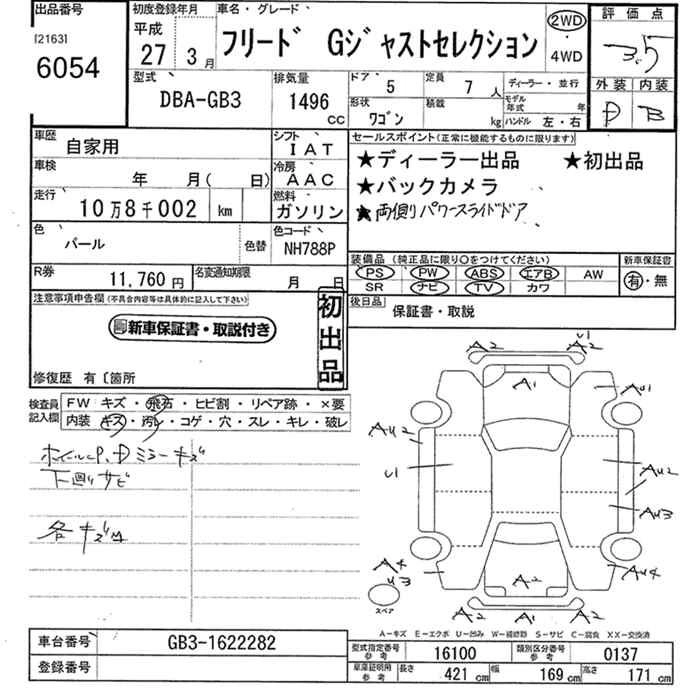 出品番号
[2163]
6054
初度登録年月
平成
27 3月
車名・グレード
フリード Gジャストセレクション
2WD
・
4WD
評価点
3.5
外装 内装
D B
型式
DBA-GB3
排気量
1496
CC
ドア 5
定員 7 人
ディーラー・並行
形状 ワゴン
積載 kg
モデル年式 年
ハンドル 左・右
車歴 自家用
シフト IAT
車検 年 月( 日)
冷房 AAC
走行 10万8千002 km
燃料 ガソリン
色 パール 色替
色コード NH788P
R券 11,760円
名変通知期限 月 日
セールスポイント(正常に機能するものに限ります)
★ディーラー出品 ★初出品
★バックカメラ
★両側パワースライドドア
装備品 (純正品に限り○をつけてください)
新車保証書
PS PW ABS エアB AW
有・無
SR ナビ TV カワ
後日品 保証書・取説
注意事項申告欄(不具合内容等は具体的に記入して下さい)
新車保証書・取説付き
初出品
修復歴 有〔箇所
検査員記入欄
FW キズ・飛石・ヒビ割・リペア跡・×要
内装 キズ・汚レ・コゲ・穴・スレ・キレ・破レ
ホイールキP,Dミラーキズ
下廻りサビ
各キズ凹
A2 U1 A2
A1 AU1
AU2
U1 AU2
AU3
A4
U3
A2 AU4
スペア
A2 A1 A2
A-キズ E-エクボ U-凹み W-補修跡 S-サビ C-腐食 XX-交換済
車台番号 GB3-1622282
登録番号
型式指定番号参考 16100
類別区分番号参考 0137
車庫証明用参考 長さ 421 cm 幅 169 cm 高さ 171 cm